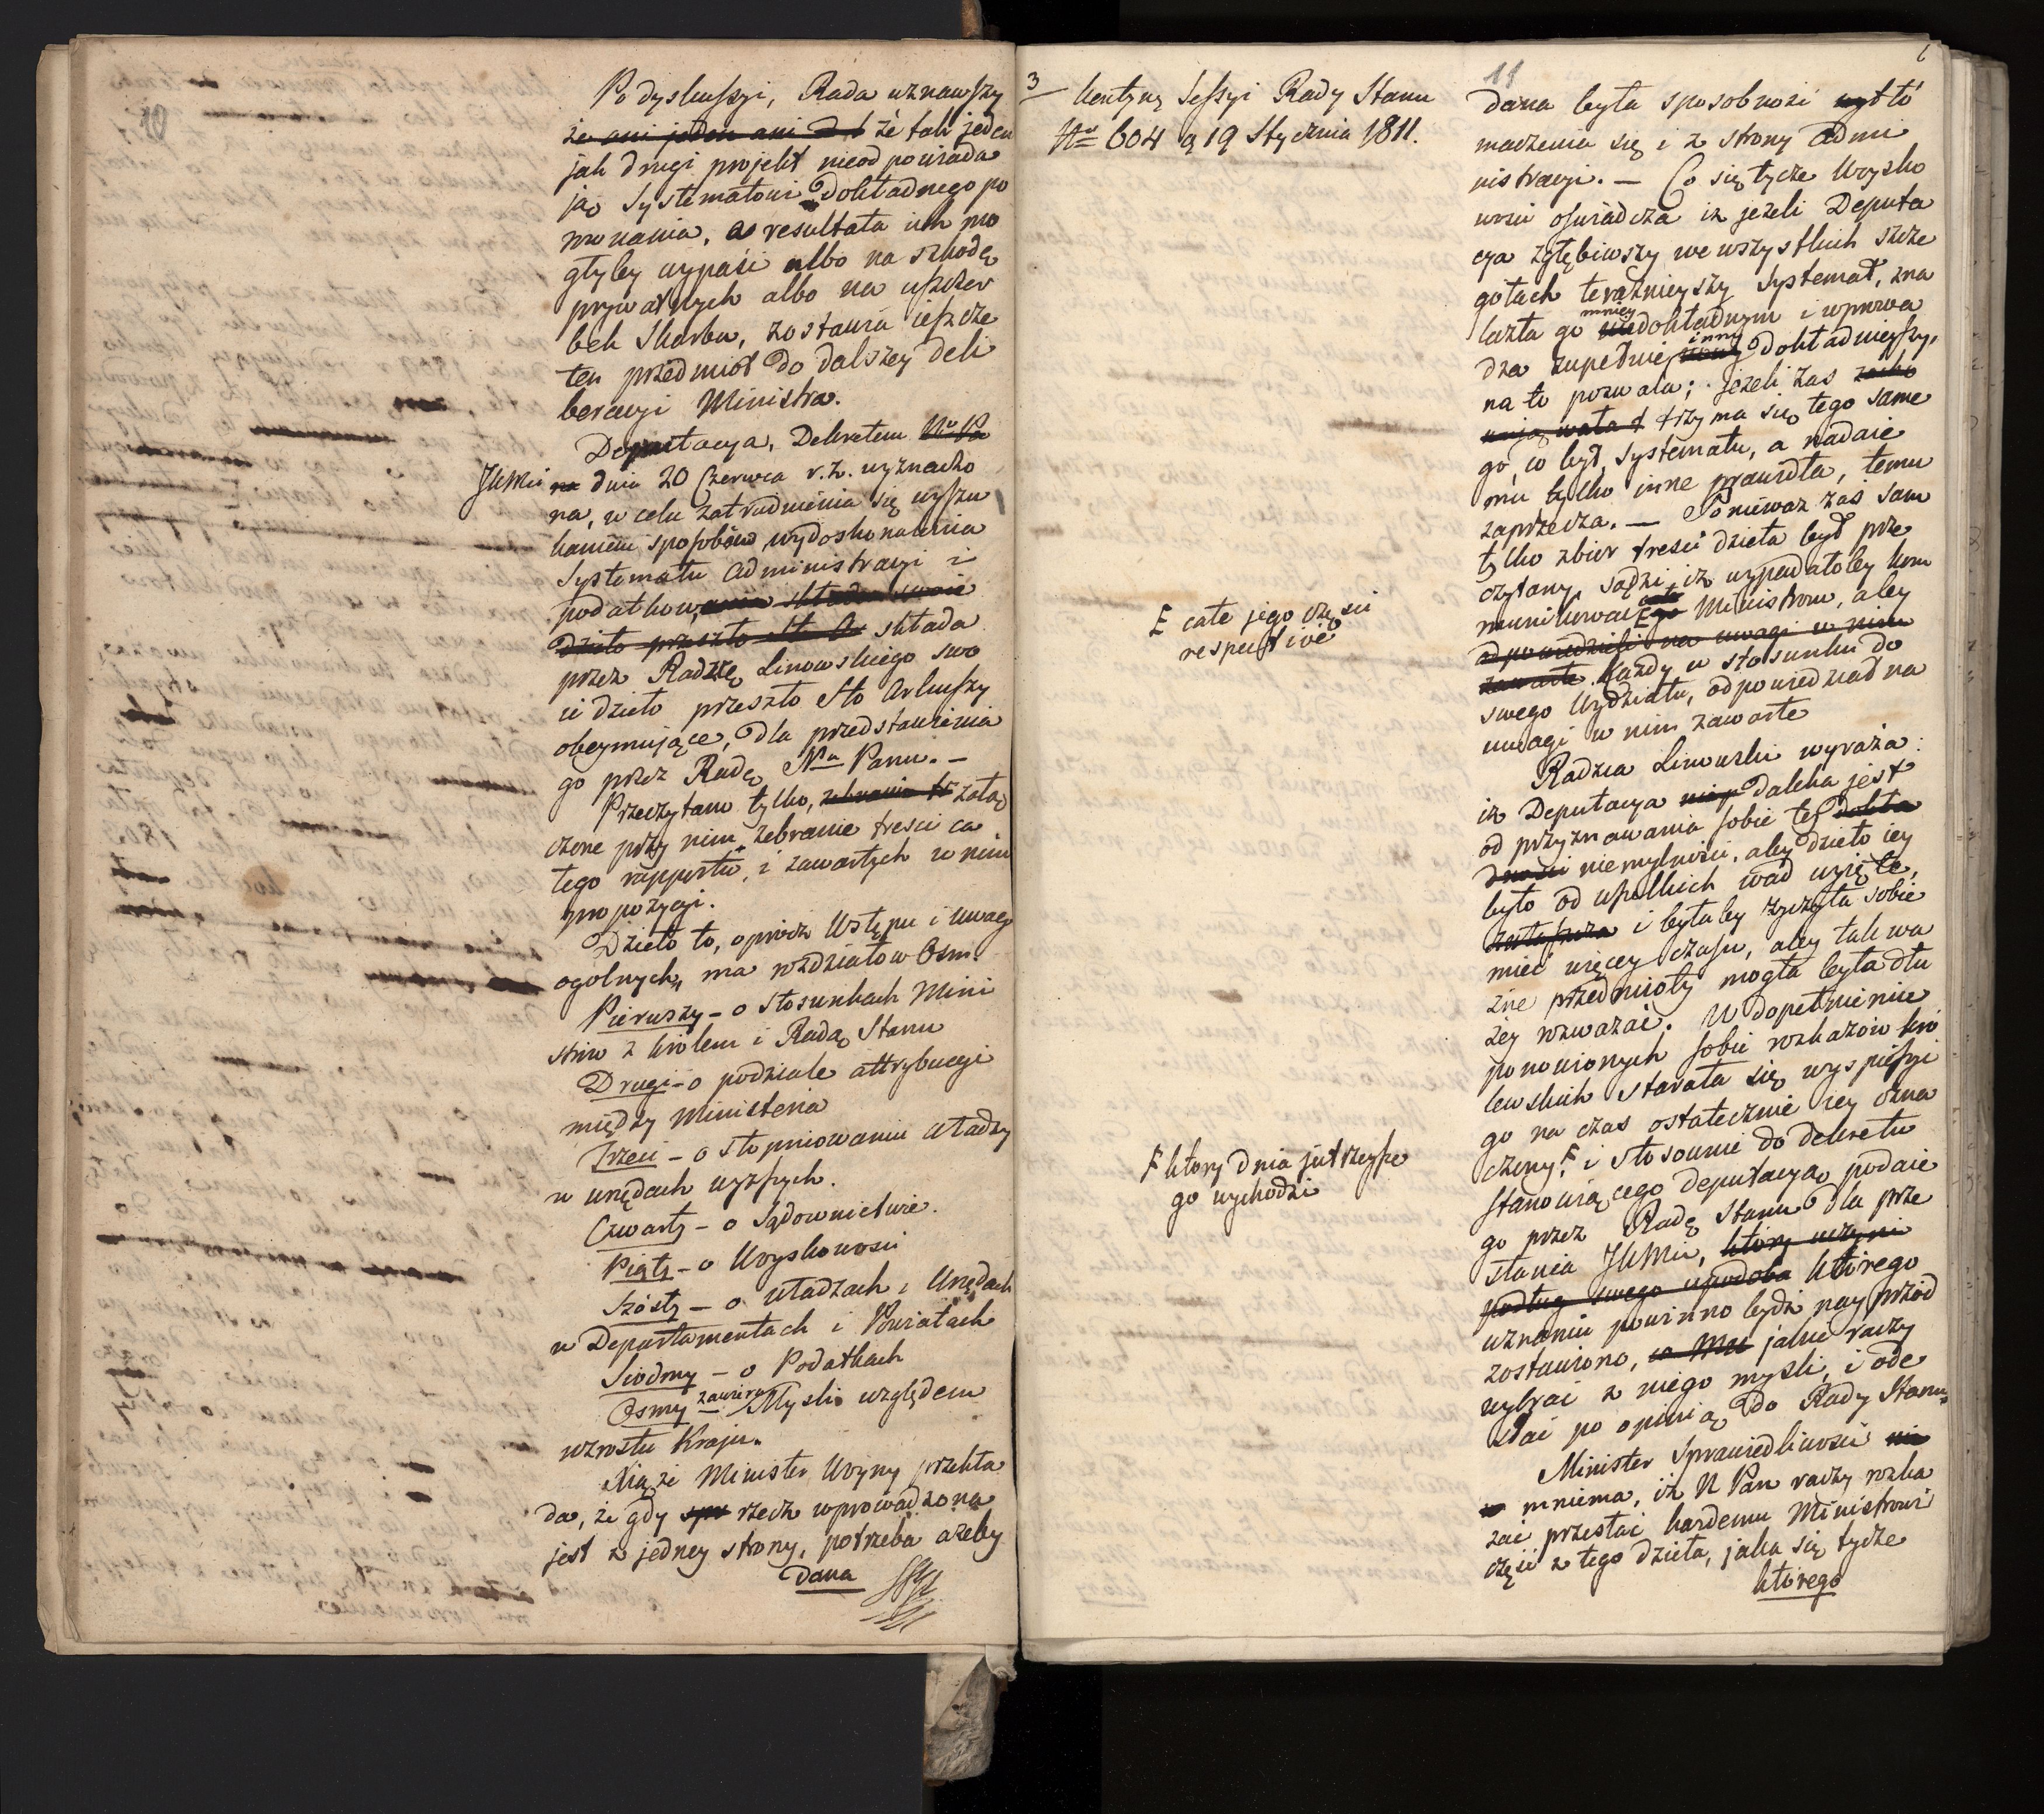 10
Po dyskussyi, Rada uznawszy
że ani jeden ani d że tak jeden
jak drugi projekt nieodpowiada
ją Systematowi dokładnego po
rownania, a resultata ich mo
głyby wypaść albo na szkodę
prywatnych albo na uszczer
bek Skarbu, zostawia ieszcze
ten przedmiot do dalszey deli
beracyi Ministra.
Deputacya, Dekretem Nº Pa
JKMci na dniu 20 Czerwca r. z. wyznaczo
na, w celu zatrudnienia się wyszu
kaniem sposobów wydoskonalenia
Systematu administracyi i
podatkowania składa swoie
dzieło przeszło st a składa
przez Radzcę Linowskiego swo
ie dzieło przeszło Sto Arkuszy
obeymujące, dla przedstawienia
go przez Radę Na. Panu. —
Przeczytano tylko, zebranie tr załą
czone przy nim zebranie treści ca
łego rapportu, i zawartych w nim
propozycyi.
Dzieło to, oprócz Wstępu i uwag
ogolnych, ma rozdziałów Osm.
Pierwszy – o Stosunkach Mini
strów z Królem i Radą Stanu
Drugi – o podziale attrybucyi
między Ministeria
Trzeci – o stopniowaniu władzy
w urzędach wyższych.
Czwarty – o Sądownictwie.
Piąty – o Woyskowości
Szósty – o władzach i Urzędach
w Departamentach i Powiatach
Siódmy – o Podatkach
Osmy zawiera Myśli względem
wzrostu Kraju.
Xiąże Minister Woyny przekła
da, że gdy spr rzecz wprowadzona
jest z jedney strony, potrzeba ażeby
dana
3
Kontyną Sessyi Rady Stanu
Nº 604 ą 19 Stycznia 1811.
E całe jego części
respective
F który dnia jutrzeysze
go wychodzi
11
6
dana była sposobność wytłó
maczenia się i z strony admi
nistracyi. — Co się tycze Woysko
wości oświadcza iż jeżeli Deputa
cya zgłębiwszy we wszystkich szcze
gołach teraźnieyszy Systemat, zna
lazła go mniey niedokładnym i wprowa
dza zupełnie nowy inny dokładnieyszy,
na to pozwala; jeżeli zaś zacho
wują wała t trzyma się tego same
go, co był, Systematu, a nadaie
mu tylko inne prawidła, temu
zaprzecza. — Ponieważ zaś sam
tylko zbiór treści dzieła był prze
czytany, sądzi, iż wypadałoby kom
munikować E go Ministrom, aby
odpowiedzieli na uwagi w nim
zawarte. Każdy w stosunku do
swego Wydziału, odpowiedział na
uwagi w nim zawarte
Radzca Linowski wyraża:
iż Deputacya nie p daleka jest
od przyznawania sobie tey dokła
dności niemylności, aby dzieło iey
było od wszelkich wad wyięte,
i byłaby życzyła sobie
mieć więcey czasu, aby tak wa
żne przedmioty mogła była dłu
żey rozważać. W dopełnienie
ponowionych sobie rozkazów kró
lewskich starała się wyspieszyć
go na czas ostatecznie iey ozna
czony, F i stosownie do dekretu
stanowiącego deputacyą podaie
go przez Radę Stanu dla prze
słania JKMci, który uczyni
podług swego upodoba którego
uznaniu powinno bydź nayprzód
zostawiono, co mu jakie raczy
wybrać z niego myśli, i ode
słać po opinią do Rady Stanu.
Minister Sprawiedliwości nie
mniema, iż N Pan raczy rozka
zać przesłać każdemu Ministrowi
część z tego dzieła, jaka się tycze
którego